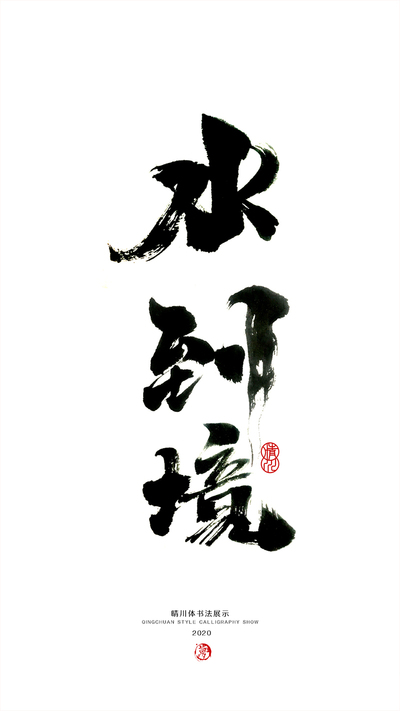 水到境
晴川
晴川体书法展示
QINGCHUAN STYLE CALLIGRAPHY SHOW
2020